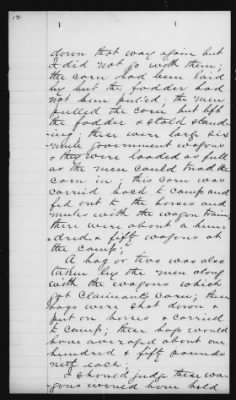 12
1
1
down that way again but
I did not go with them;
the corn had been laid
by but the fodder had
not been pulled; the men
pulled the corn but left
the fodder & stalk stand-
ing; these were large six
mule government wagons
& they were loaded as full
as the men could tread the
corn in; this corn was
carried back to camp and
fed out to the horses and
mules with the wagon train,
there were about a hun-
dred & fifty wagons at
the camp;
A hog or two was also
taken by the men along
with the wagons which
got Claimants corn; these
hogs were shot down &
put on horses & carried
to camp; these hogs would
have averaged about one
hundred & fifty pounds
nett each;
I should judge these wa-
gons would have held